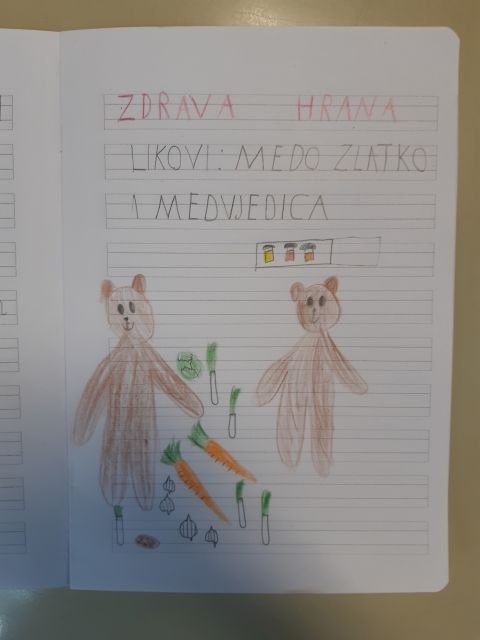 ZDRAVA HRANA
LIKOVI: MEDO ZLATKO
I MEDVJEDICA